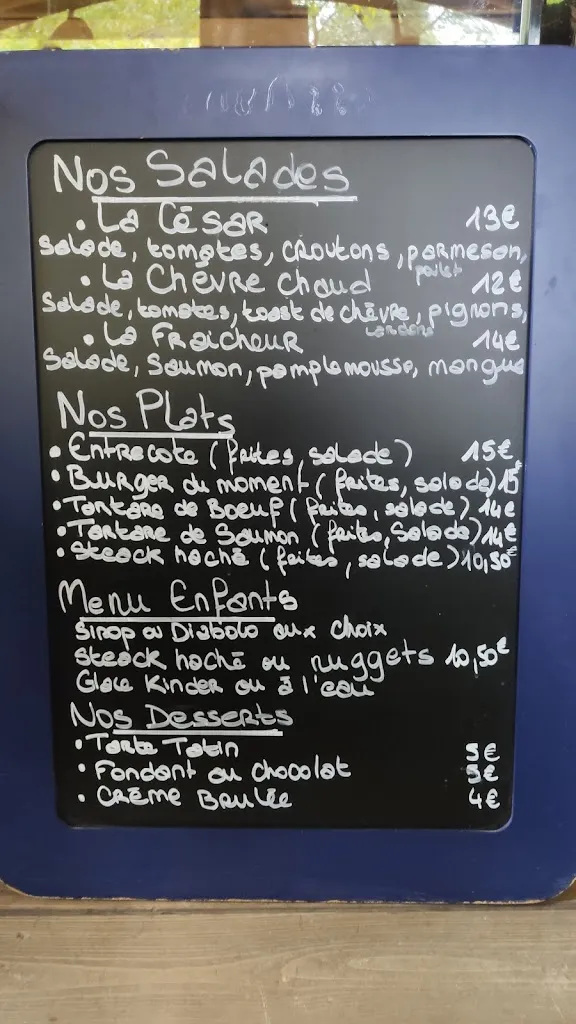 Nos Salades
• La César 13€
Salade, tomates, croutons, parmesan,
poulet
• La Chèvre chaud 12€
Salade, tomates, toast de chèvre, pignons,
lardons
• La Fraicheur 14€
Salade, Saumon, pamplemousse, mangue
Nos Plats
• Entrecote (frites, salade) 15€
• Burger du moment (frites, salade) 15€
• Tartare de Boeuf (frites, salade) 14€
• Tartare de Saumon (frites, Salade) 14€
• Steack haché (frites, salade) 10,50€
Menu Enfants
Sirop ou Diabolo aux choix
Steack haché ou nuggets 10,50€
Glace Kinder ou à l'eau
Nos Desserts
• Tarte Tatin 5€
• Fondant au chocolat 5€
• Crème Brulée 4€